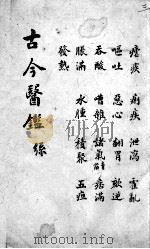 瘧疾 痢疾 泄瀉 霍亂
嘔吐 惡心 翻胃 欬逆
吞酸 嘈雜 諸氣 痞滿
脹滿 水腫 積聚 五疸
發熱
古今醫鑑